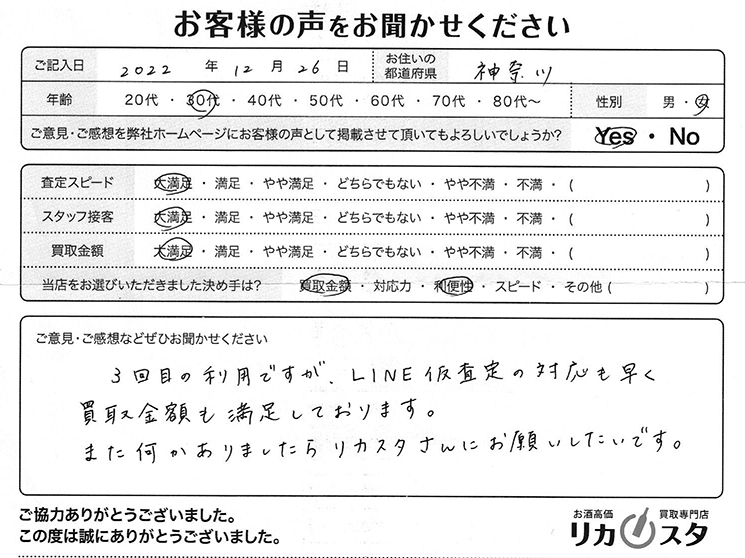 お客様の声をお聞かせください
ご記入日 2022 年 12 月 26 日 お住いの都道府県 神奈川
年齢 20代 ・ 30代 ・ 40代 ・ 50代 ・ 60代 ・ 70代 ・ 80代～ 性別 男 ・ 女
ご意見・ご感想を弊社ホームページにお客様の声として掲載させて頂いてもよろしいでしょうか? Yes ・ No
査定スピード 大満足 ・ 満足 ・ やや満足 ・ どちらでもない ・ やや不満 ・ 不満 ・ ( )
スタッフ接客 大満足 ・ 満足 ・ やや満足 ・ どちらでもない ・ やや不満 ・ 不満 ・ ( )
買取金額 大満足 ・ 満足 ・ やや満足 ・ どちらでもない ・ やや不満 ・ 不満 ・ ( )
当店をお選びいただきました決め手は? 買取金額 ・ 対応力 ・ 利便性 ・ スピード ・ その他 ( )
ご意見・ご感想などぜひお聞かせください
3回目の利用ですが、LINE仮査定の対応も早く
買取金額も満足しております。
また何かありましたらリカスタさんにお願いしたいです。
ご協力ありがとうございました。
この度は誠にありがとうございました。
お酒高価 買取専門店
リカスタ